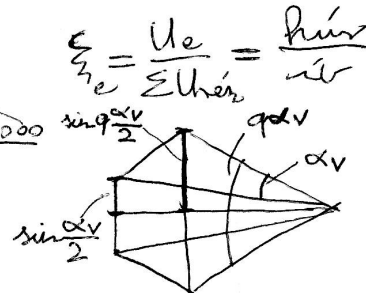 ξₑ = Uₑ / ΣUₕᵣ = húr / ív
000 sin q αᵥ/2 qαᵥ
αᵥ
sin αᵥ/2